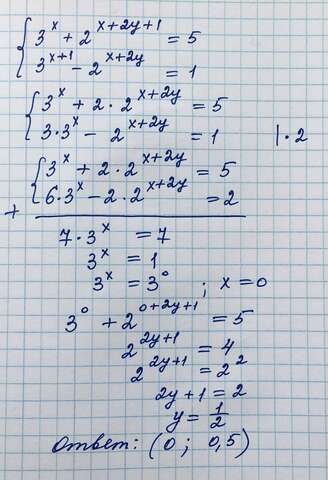 3^x + 2^(x+2y+1) = 5
3^(x+1) - 2^(x+2y) = 1
3^x + 2·2^(x+2y) = 5
3·3^x - 2^(x+2y) = 1 |·2
3^x + 2·2^(x+2y) = 5
+ 6·3^x - 2·2^(x+2y) = 2
7·3^x = 7
3^x = 1
3^x = 3^0 ; x = 0
3^0 + 2^(0+2y+1) = 5
2^(2y+1) = 4
2^(2y+1) = 2^2
2y + 1 = 2
y = 1/2
Ответ: (0; 0,5)